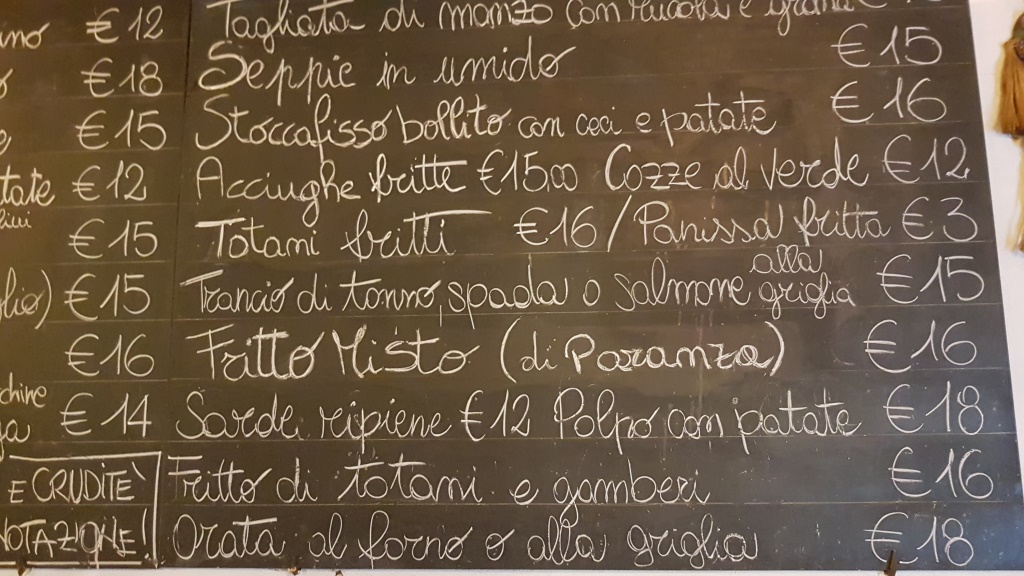 € 12 Tagliata di manzo con rucola e grana
€ 18 Seppie in umido € 15
€ 15 Stoccafisso bollito con ceci e patate € 16
tate € 12 Acciughe fritte € 15,00 Cozze al verde € 12
€ 15 Totani fritti € 16 / Panissa fritta € 3
€ 15 Trancio di tonno, spada o salmone alla griglia € 15
€ 16 Fritto Misto (di Paranza) € 16
€ 14 Sarde ripiene € 12 Polpo con patate € 18
E CRUDITÈ Fritto di totani e gamberi € 16
NOTAZIONE! Orata al forno o alla griglia € 18